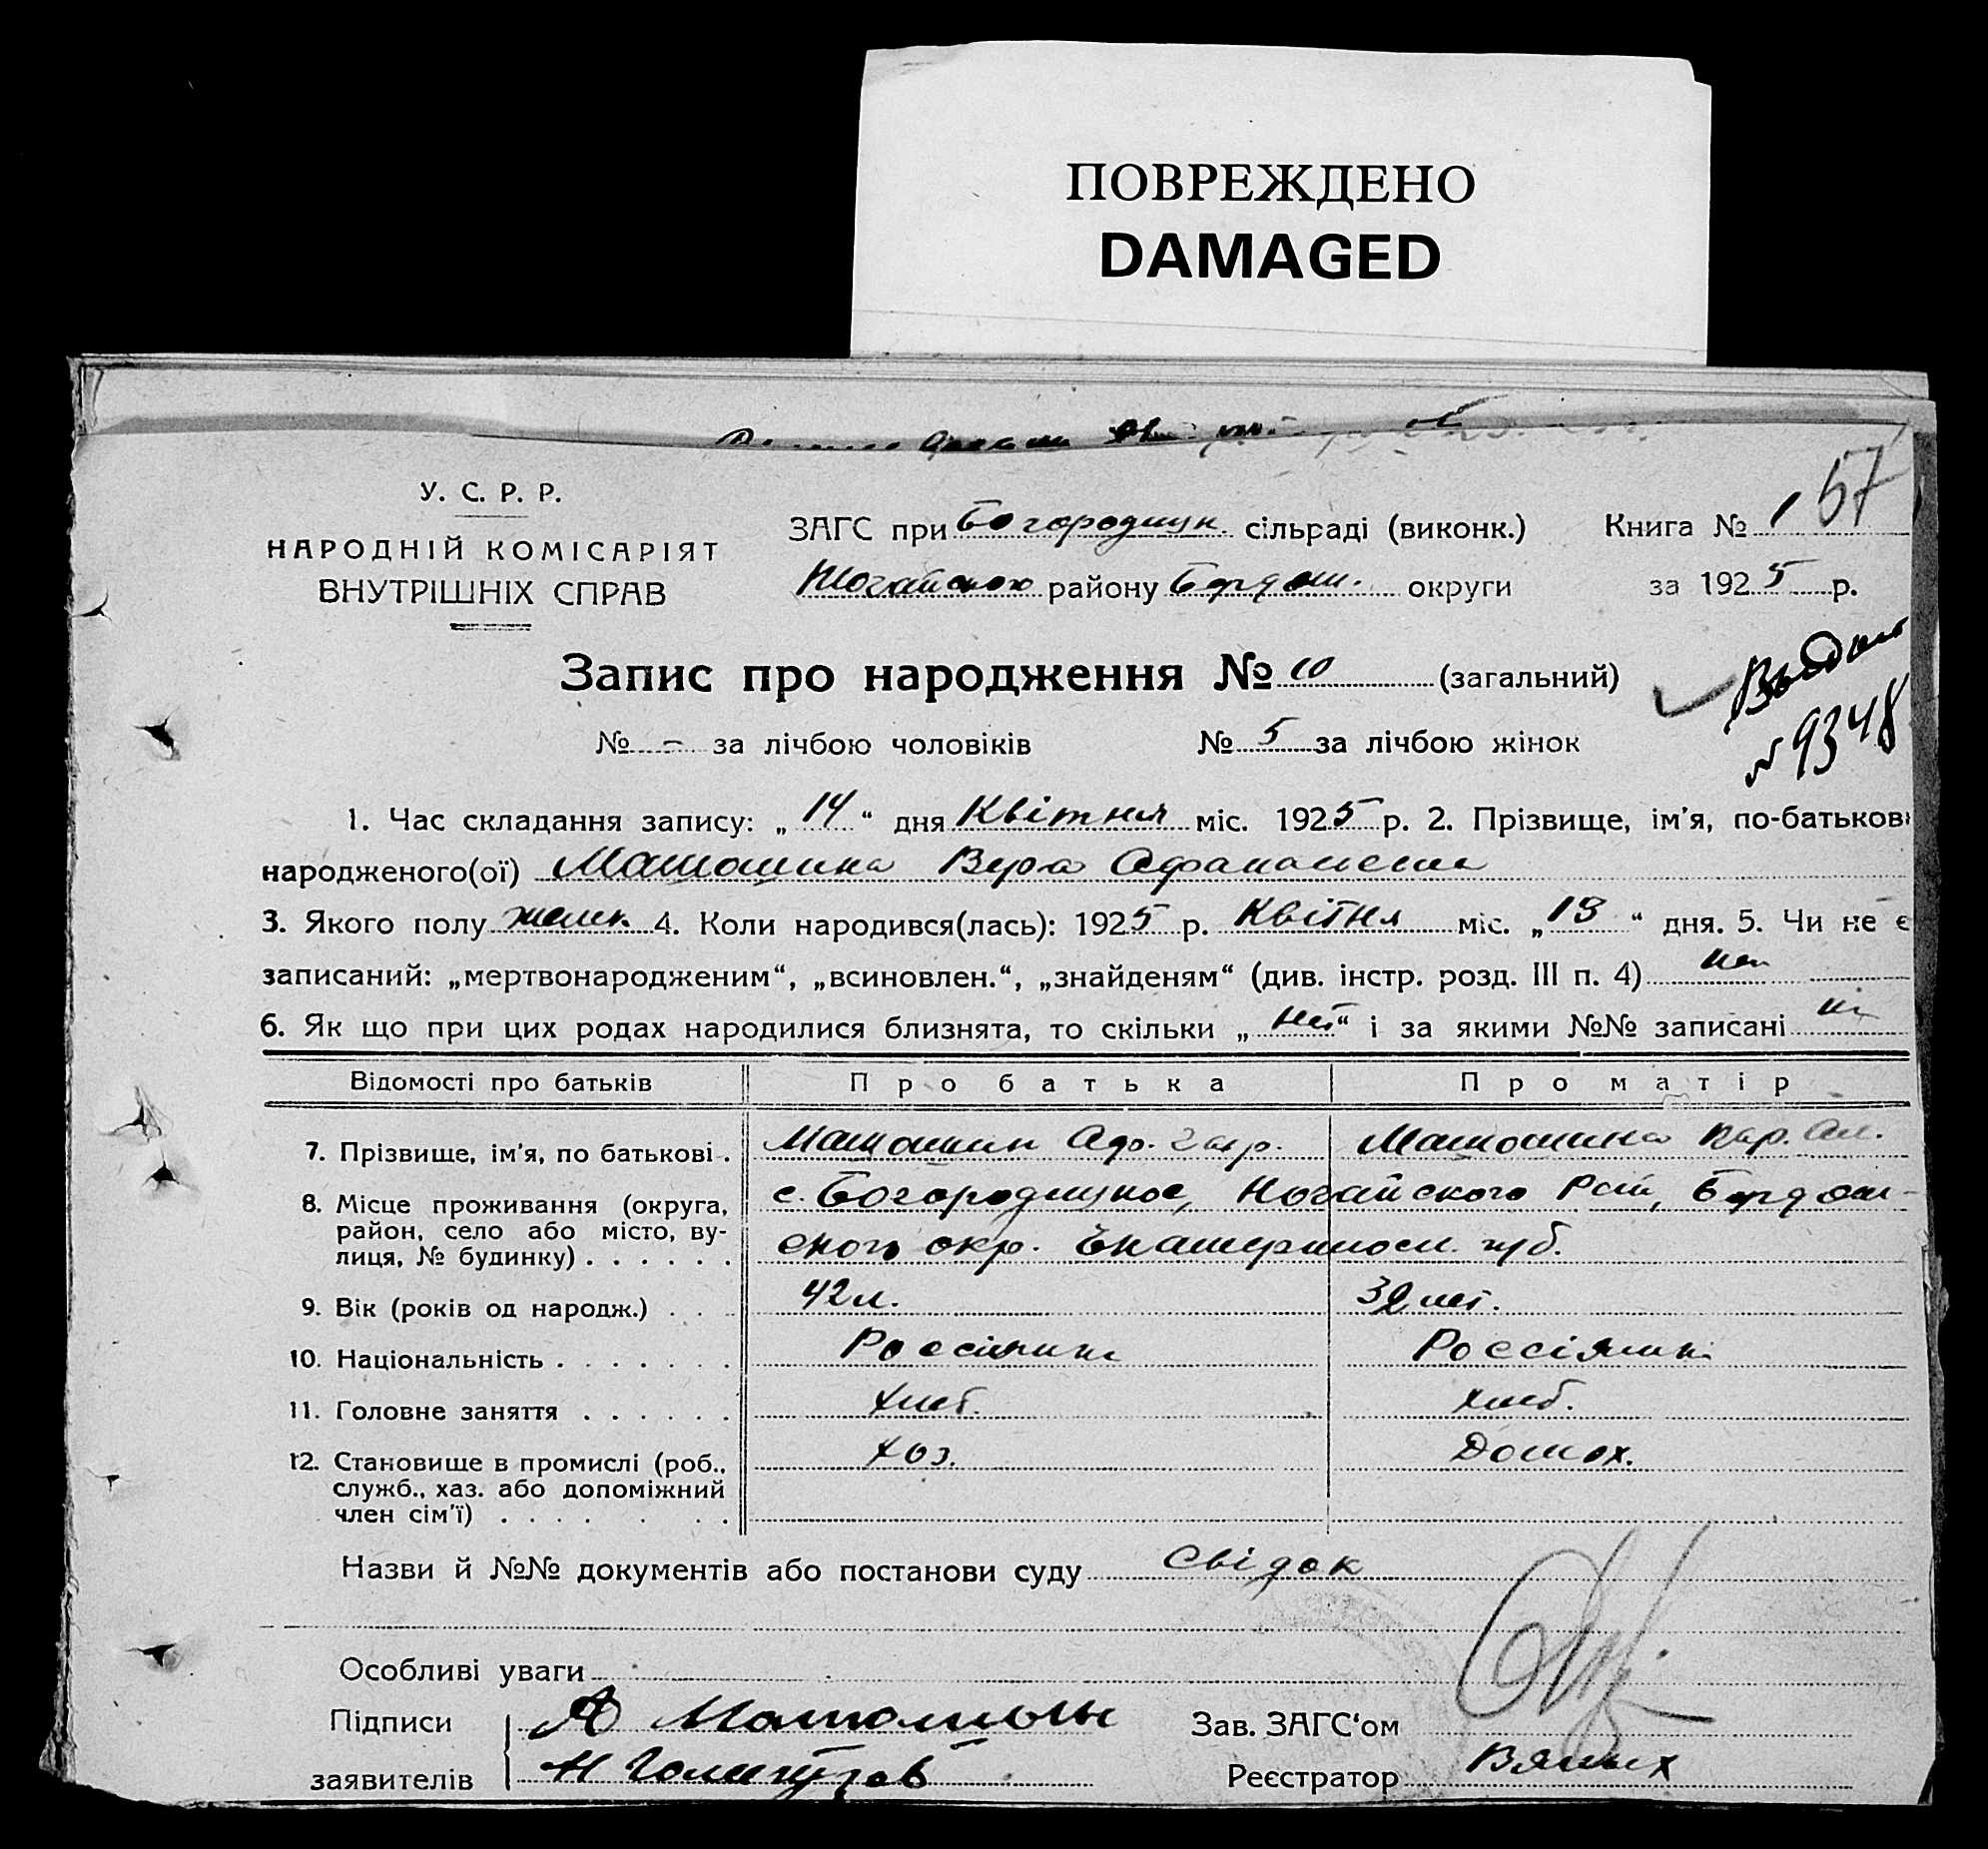 ПОВРЕЖДЕНО
DAMAGED
У. С. Р. Р.
НАРОДНІЙ КОМІСАРІЯТ
ВНУТРІШНІХ СПРАВ
ЗАГС при Богородицк. сільраді (виконк.)
Книга № 1 57
Ногайского району Бердян. округи
за 1925 р.
Запис про народження № 10 (загальний)
Выдан
№ 9348
№ - за лічбою чоловіків № 5 за лічбою жінок
1. Час складання запису: „14“ дня Квітня міс. 1925 р. 2. Прізвище, ім'я, по-батькові
народженого(ої) Матюшина Вера
3. Якого полу женск. 4. Коли народився(лась): 1925 р. Квітня міс. „13“ дня. 5. Чи не є
записаний: „мертвонародженим“, „всиновлен.“, „знайденям“ (див. інстр. розд. III п. 4) нет
6. Як що при цих родах народилися близнята, то скільки „нет“ і за якими №№ записані
Відомості про батьків Про батька Про матір
7. Прізвище, ім'я, по батькові. Матюшин Матюшина
8. Місце проживання (округа, район, село або місто, вулиця, № будинку) . . . . . . с. Богородицкое, Ногайского Рай, Бердян-
ского окр. Екатериносл. губ.
9. Вік (років од народж.) . . . 42 л. 32 лет.
10. Національність . . . . . . . Россіянин Россіянин
11. Головне заняття . . . . . . хлеб. хлеб.
12. Становище в промислі (роб., служб., хаз. або допоміжний член сім'ї) . . . . . . . хоз. Домох.
Назви й №№ документів або постанови суду Свідок
Особливі уваги
Підписи А Матюшин Зав. ЗАГС'ом
заявителів Н Реєстратор Вяных